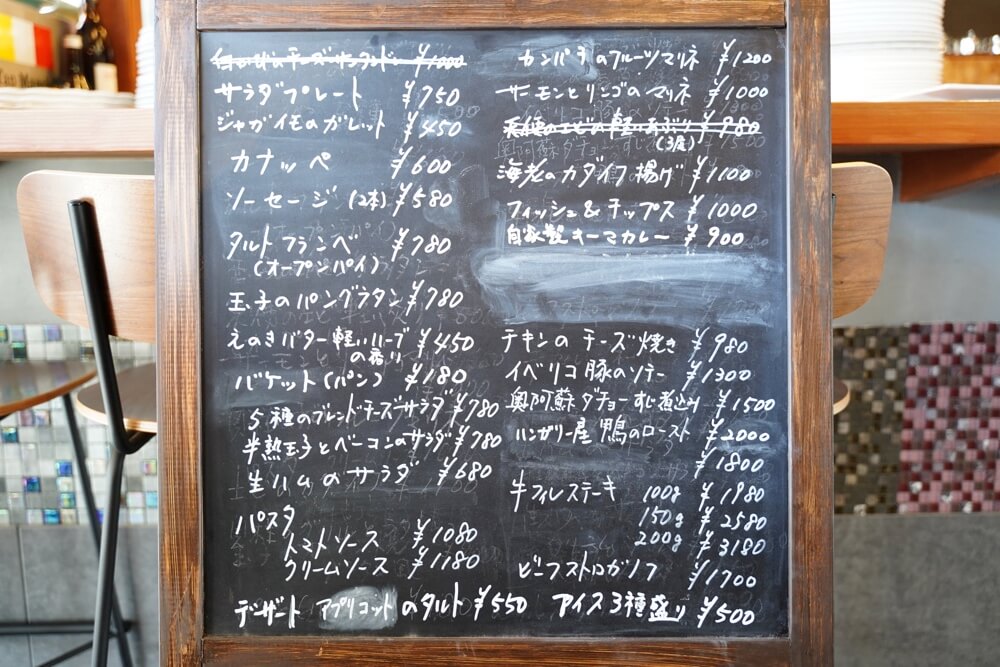 サラダプレート ¥750
ジャガイモのガレット ¥450
カナッペ ¥600
ソーセージ (2本) ¥580
タルトフランベ ¥780
(オープンパイ)
玉子のパングラタン ¥780
えのきバター軽いハーブ ¥450
の香り
バケット(パン) ¥180
5種のブレンドチーズサラダ ¥780
半熟玉子とベーコンのサラダ ¥780
生ハムのサラダ ¥680
パスタ
トマトソース ¥1080
クリームソース ¥1180
カンパチのフルーツマリネ ¥1200
サーモンとリンゴのマリネ ¥1000
の軽いあぶり ¥980
海老のカダイフ揚げ ¥1100
フィッシュ&チップス ¥1000
自家製キーマカレー ¥900
チキンのチーズ焼き ¥980
イベリコ豚のソテー ¥1300
奥阿蘇ダチョーすじ煮込み ¥1500
ハンガリー産 鴨のロースト ¥2000
¥1800
牛フィレステーキ 100g ¥1980
150g ¥2580
200g ¥3180
ビーフストロガノフ ¥1700
デザート アプリコットのタルト ¥550 アイス3種盛り ¥500